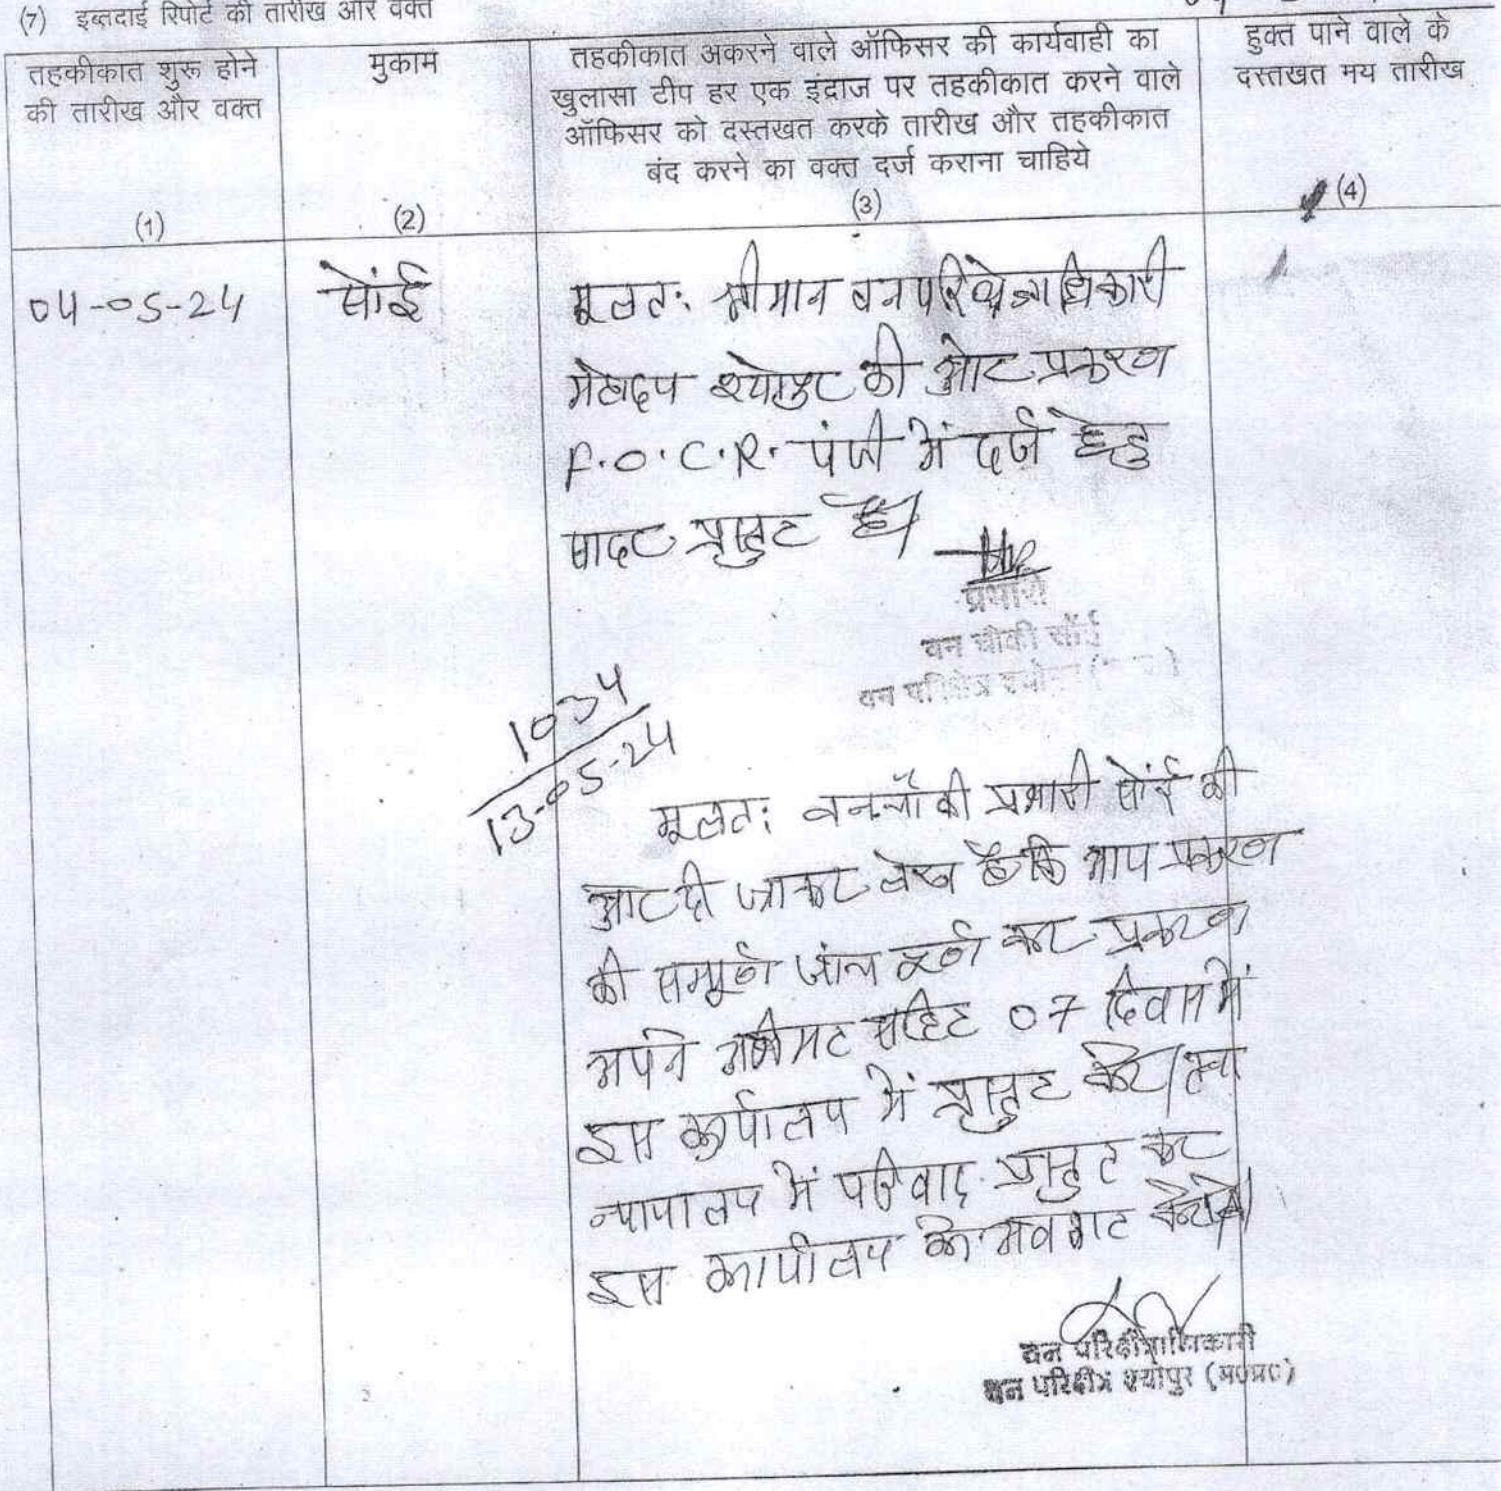 (7) इब्तदाई रिपोर्ट की तारीख और वक्त
तहकीकात शुरू होने
की तारीख और वक्त
(1)
मुकाम
(2)
तहकीकात अकरने वाले ऑफिसर की कार्यवाही का
खुलासा टीप हर एक इंद्राज पर तहकीकात करने वाले
ऑफिसर को दस्तखत करके तारीख और तहकीकात
बंद करने का वक्त दर्ज कराना चाहिये
(3)
हुक्त पाने वाले के
दस्तखत मय तारीख
(4)
04-05-24
सोंई
मूलतः श्रीमान वनपरिक्षेत्राधिकारी
महोदय श्योपुर की ओर प्रकरण
P.O.C.R. पंजी में दर्ज हेतु
सादर प्रस्तुत है।
प्रभारी
वन चौकी सोंई
वन परिक्षेत्र
1034
13-05-24
मूलतः वनचौकी प्रभारी सोंई की
ओर दी जाकर लेख है कि आप प्रकरण
की सम्पूर्ण जांच पूर्ण कर प्रकरण
अपने अभिमत सहित 07 दिवस में
इस कार्यालय में प्रस्तुत करें। तथा
न्यायालय में परिवाद प्रस्तुत कर
इस कार्यालय को अवगत करावें।
वन परिक्षेत्राधिकारी
वन परिक्षेत्र श्योपुर (म०प्र०)